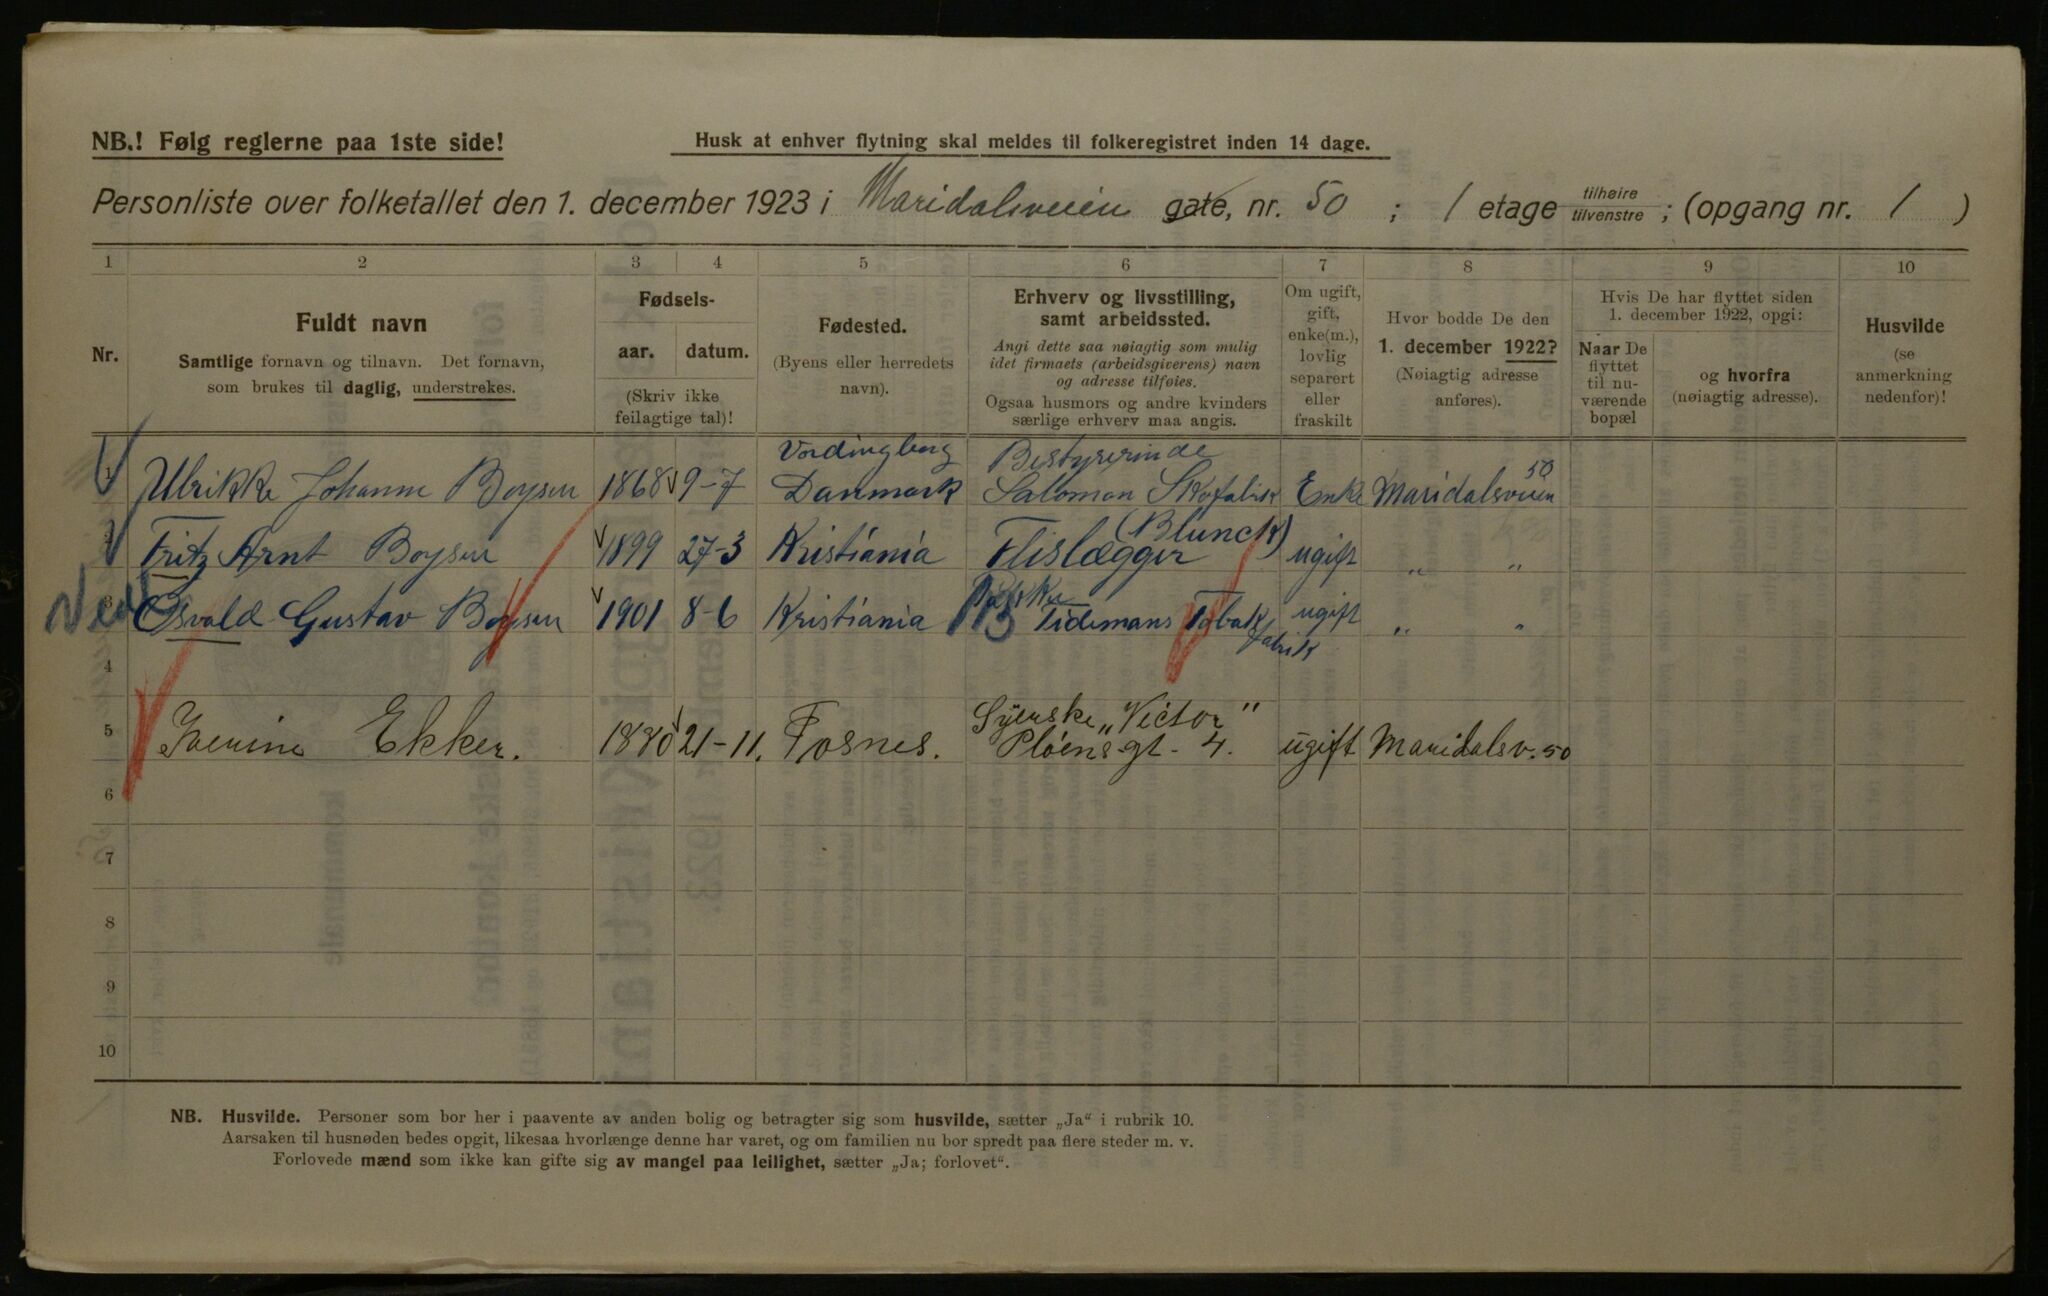 NB.! Følg reglerne paa 1ste side!
Husk at enhver flytning skal meldes til folkeregistret inden 14 dage.
Personliste over folketallet den 1. december 1923 i Maridalsveien gate, nr. 50 ; 1 etage tilhøire tilvenstre ; (opgang nr. 1 )
1 2 3 4 5 6 7 8 9 10
Nr.
Fuldt navn
Samtlige fornavn og tilnavn. Det fornavn,
som brukes til daglig, understrekes.
Fødsels-
aar. datum.
(Skriv ikke
feilagtige tal)!
Fødested.
(Byens eller herredets
navn).
Erhverv og livsstilling,
samt arbeidssted.
Angi dette saa nøiagtig som mulig
idet firmaets (arbeidsgiverens) navn
og adresse tilføies.
Ogsaa husmors og andre kvinders
særlige erhverv maa angis.
Om ugift,
gift,
enke(m.),
lovlig
separert
eller
fraskilt
Hvor bodde De den
1. december 1922?
(Nøiagtig adresse
anføres).
Hvis De har flyttet siden
1. december 1922, opgi:
Naar De
flyttet
til nu-
værende
bopæl
og hvorfra
(nøiagtig adresse).
Husvilde
(se
anmerkning
nedenfor)!
1 Ulrikke Johanne Boysen 1868 9-7 Vordingborg Danmark Bestyrerinde Salomon Skofabrik Enke Maridalsveien 50
2 Fritz Arnt Boysen 1899 27-3 Kristiania Flislægger (Blunck) ugift „ „
3 Osvald Gustav Boysen 1901 8-6 Kristiania Tidemans Tobak fabrik ugift „ „
4
5 Ekker. 1880 21-11. Fosnes. Syerske „Victor" Pløens gt. 4. ugift Maridalsv. 50
6
7
8
9
10
NB. Husvilde. Personer som bor her i paavente av anden bolig og betragter sig som husvilde, sætter „Ja“ i rubrik 10.
Aarsaken til husnøden bedes opgit, likesaa hvorlænge denne har varet, og om familien nu bor spredt paa flere steder m. v.
Forlovede mænd som ikke kan gifte sig av mangel paa leilighet, sætter „Ja; forlovet“.